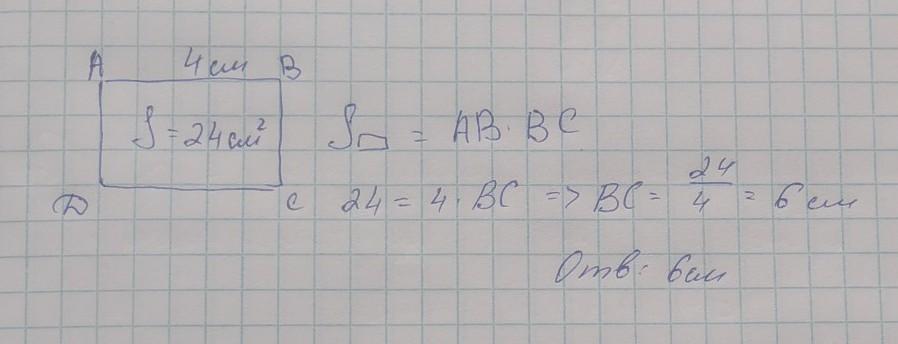 A 4 см B
S = 24 см²
S▭ = AB · BC
D C
24 = 4 · BC => BC = 24/4 = 6 см
Отв: 6 см